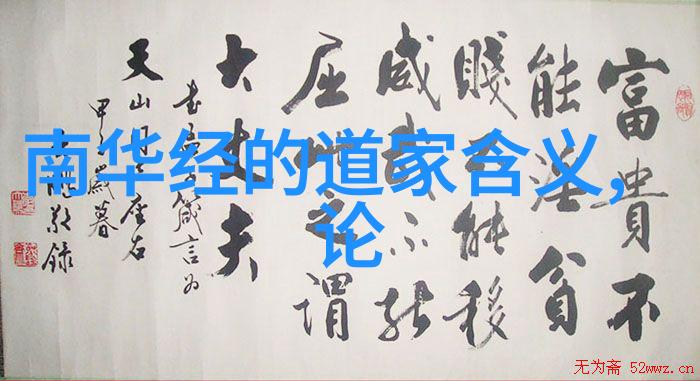 南华经的道家含义,
论
富貴不
能淫貧
賤不能移
威武不能
屈此之謂
大丈夫
書孟子箴言为
天山月座右
甲歲暮
敬錄
无为斋 52wwz.cn